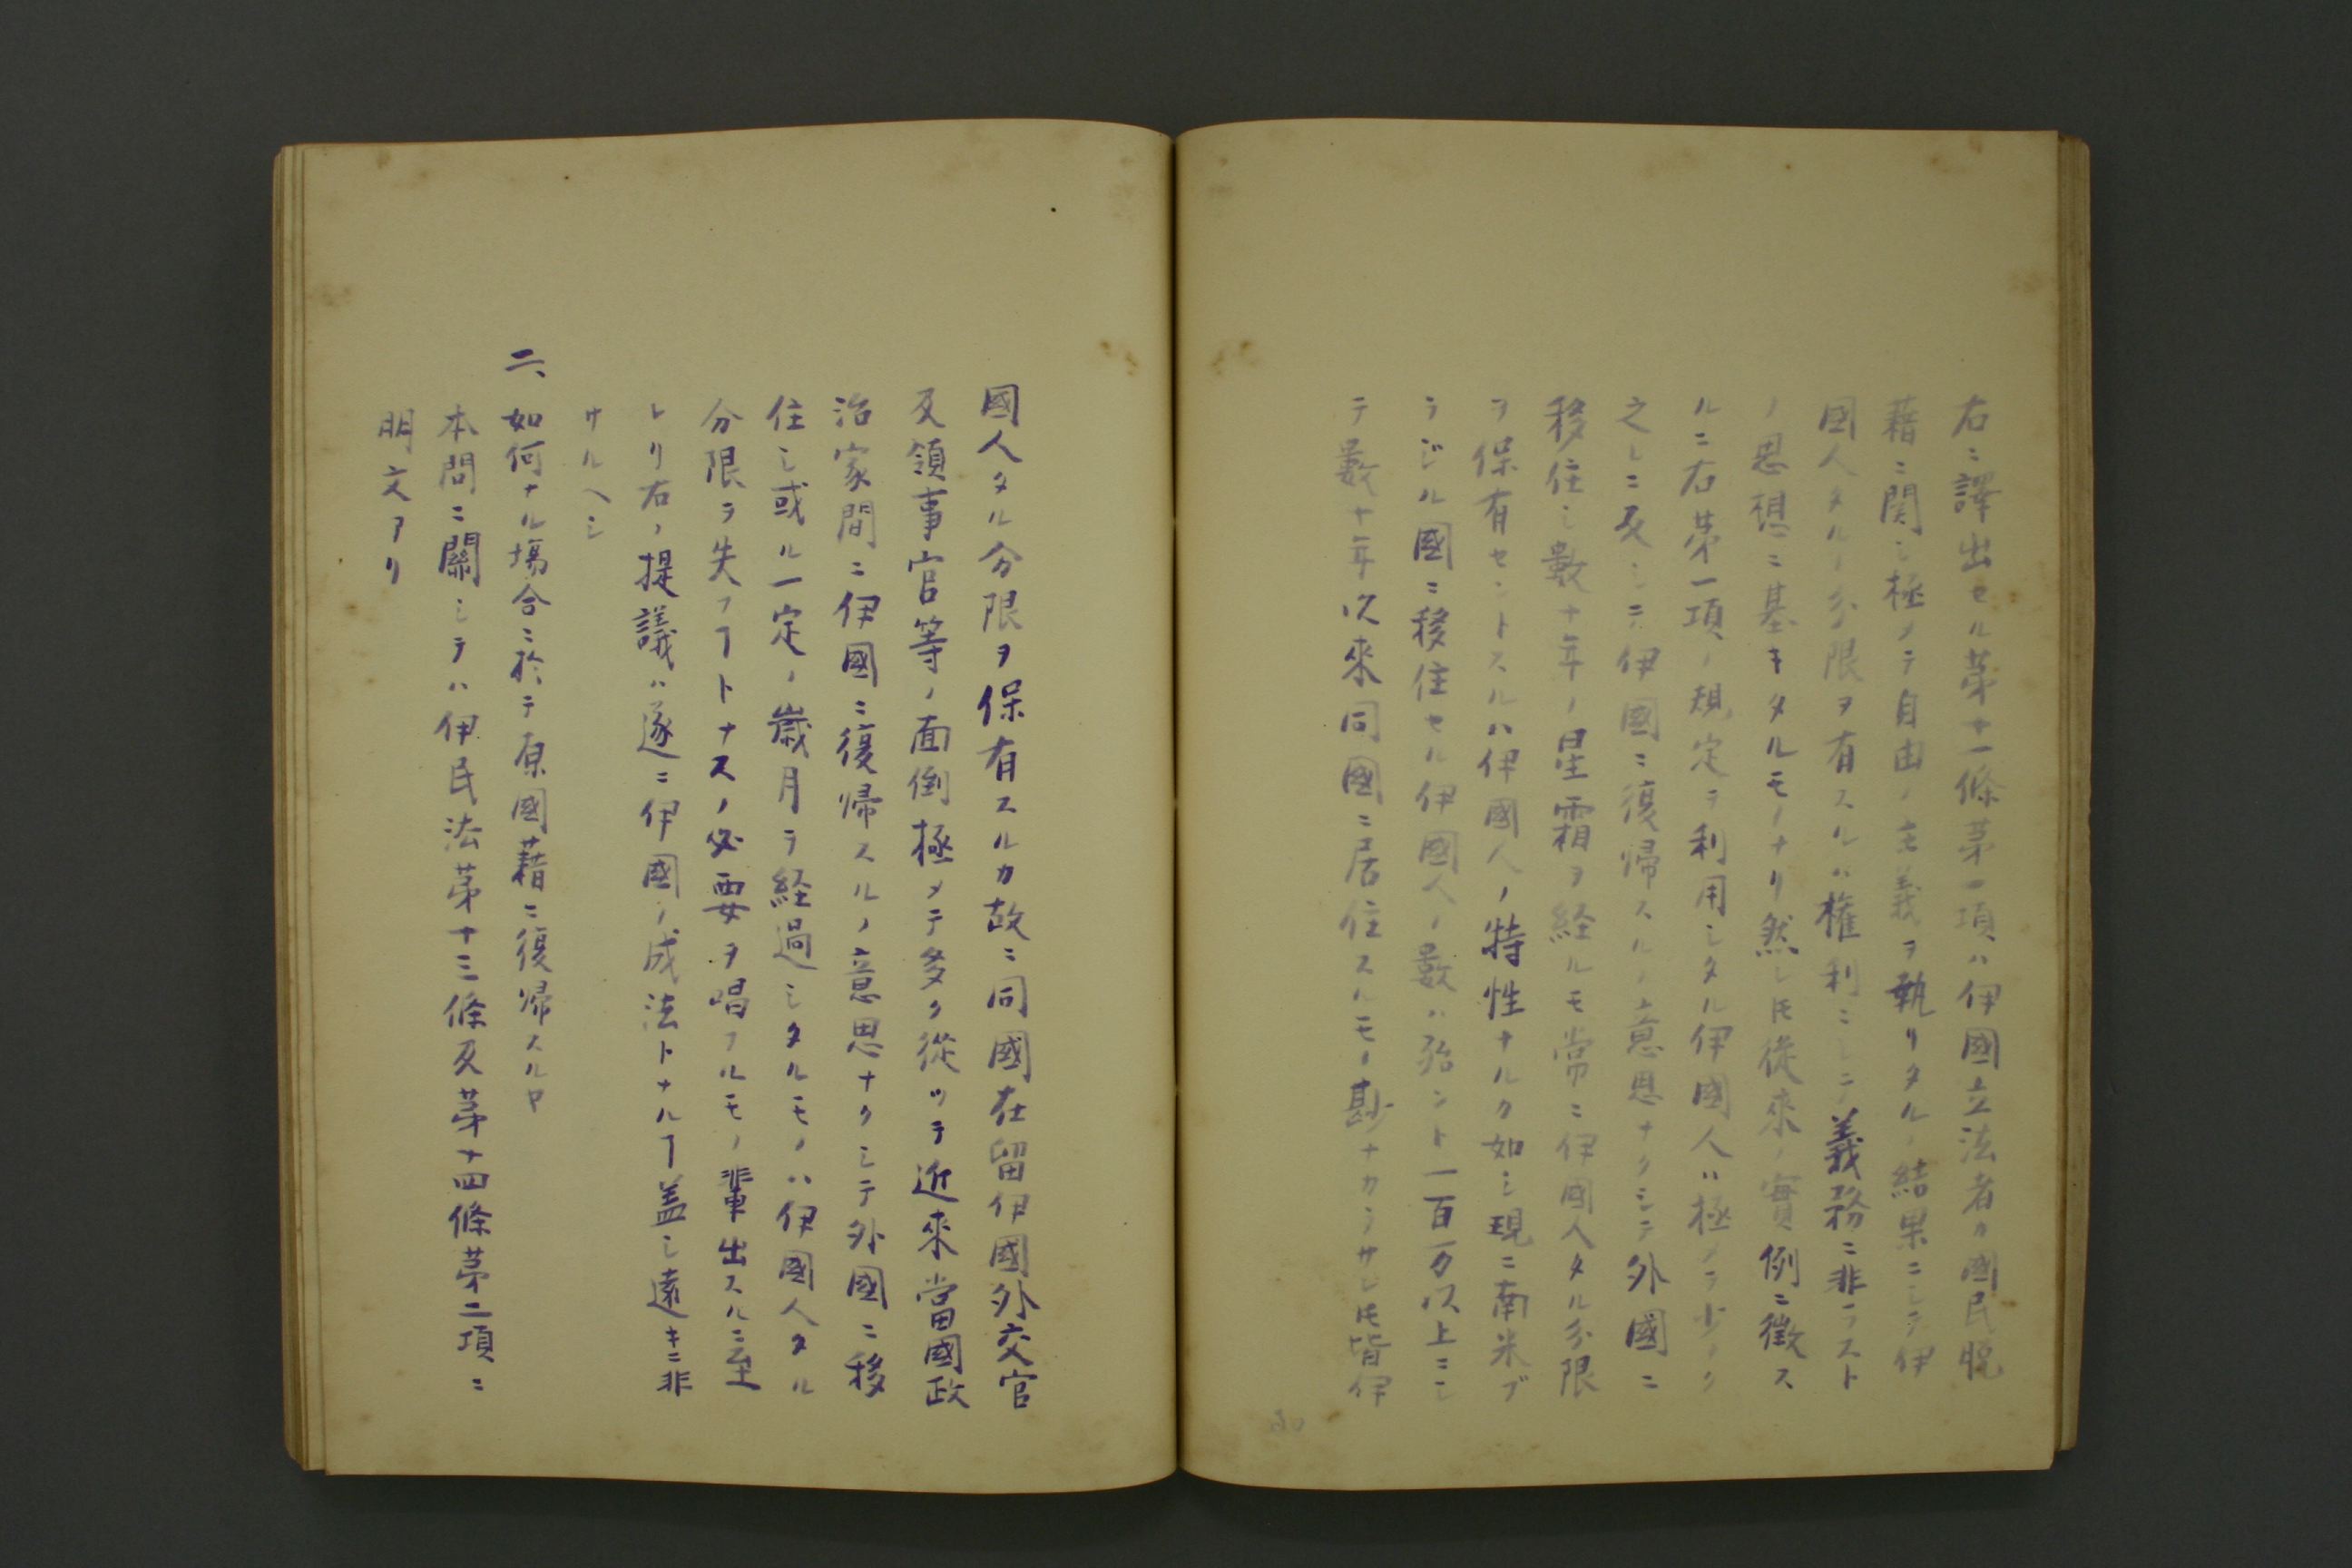 右ニ譯出セル第十一條第一項ハ伊國立法者カ國民脱
藉ニ関シ極メテ自由ノ主義ヲ執リタルノ結果ニシテ伊
國人タルノ分限ヲ有スルハ權利ニシテ義務ニ非ラスト
ノ思想ニ基キタルモノナリ然レ𪜈從來ノ實例ニ徴ス
ルニ右第一項ノ規定ヲ利用シタル伊國人ハ極メテ少ナク
之レニ反シテ伊國ニ復帰スルノ意思ナクシテ外國ニ
移住シ數十年ノ星霜ヲ経ルモ常ニ伊國人タル分限
ヲ保有セントスルハ伊國人ノ特性ナルカ如シ現ニ南米ブ
ラジル國ニ移住セル伊國人ノ數ハ殆ント一百万以上ニシ
テ數十年以來同國ニ居住スルモノ尠ナカラサレ𪜈皆伊
國人タル分限ヲ保有スルカ故ニ同國在留伊國外交官
及領事官等ノ面倒極メテ多ク從ツテ近來當國政
治家間ニ伊國ニ復帰スルノ意思ナクシテ外國ニ移
住シ或ル一定ノ歳月ヲ経過シタルモノハ伊國人タル
分限ヲ失フヿトナスノ必要ヲ唱フルモノ輩出スルニ至
レリ右ノ提議ハ遂ニ伊國ノ成法トナルヿ盖シ遠キニ非
サルヘシ
二、如何ナル塲合ニ於テ原國藉ニ復帰スルヤ
本問ニ關シテハ伊民法第十三條及第十四條第二項ニ
明文アリ